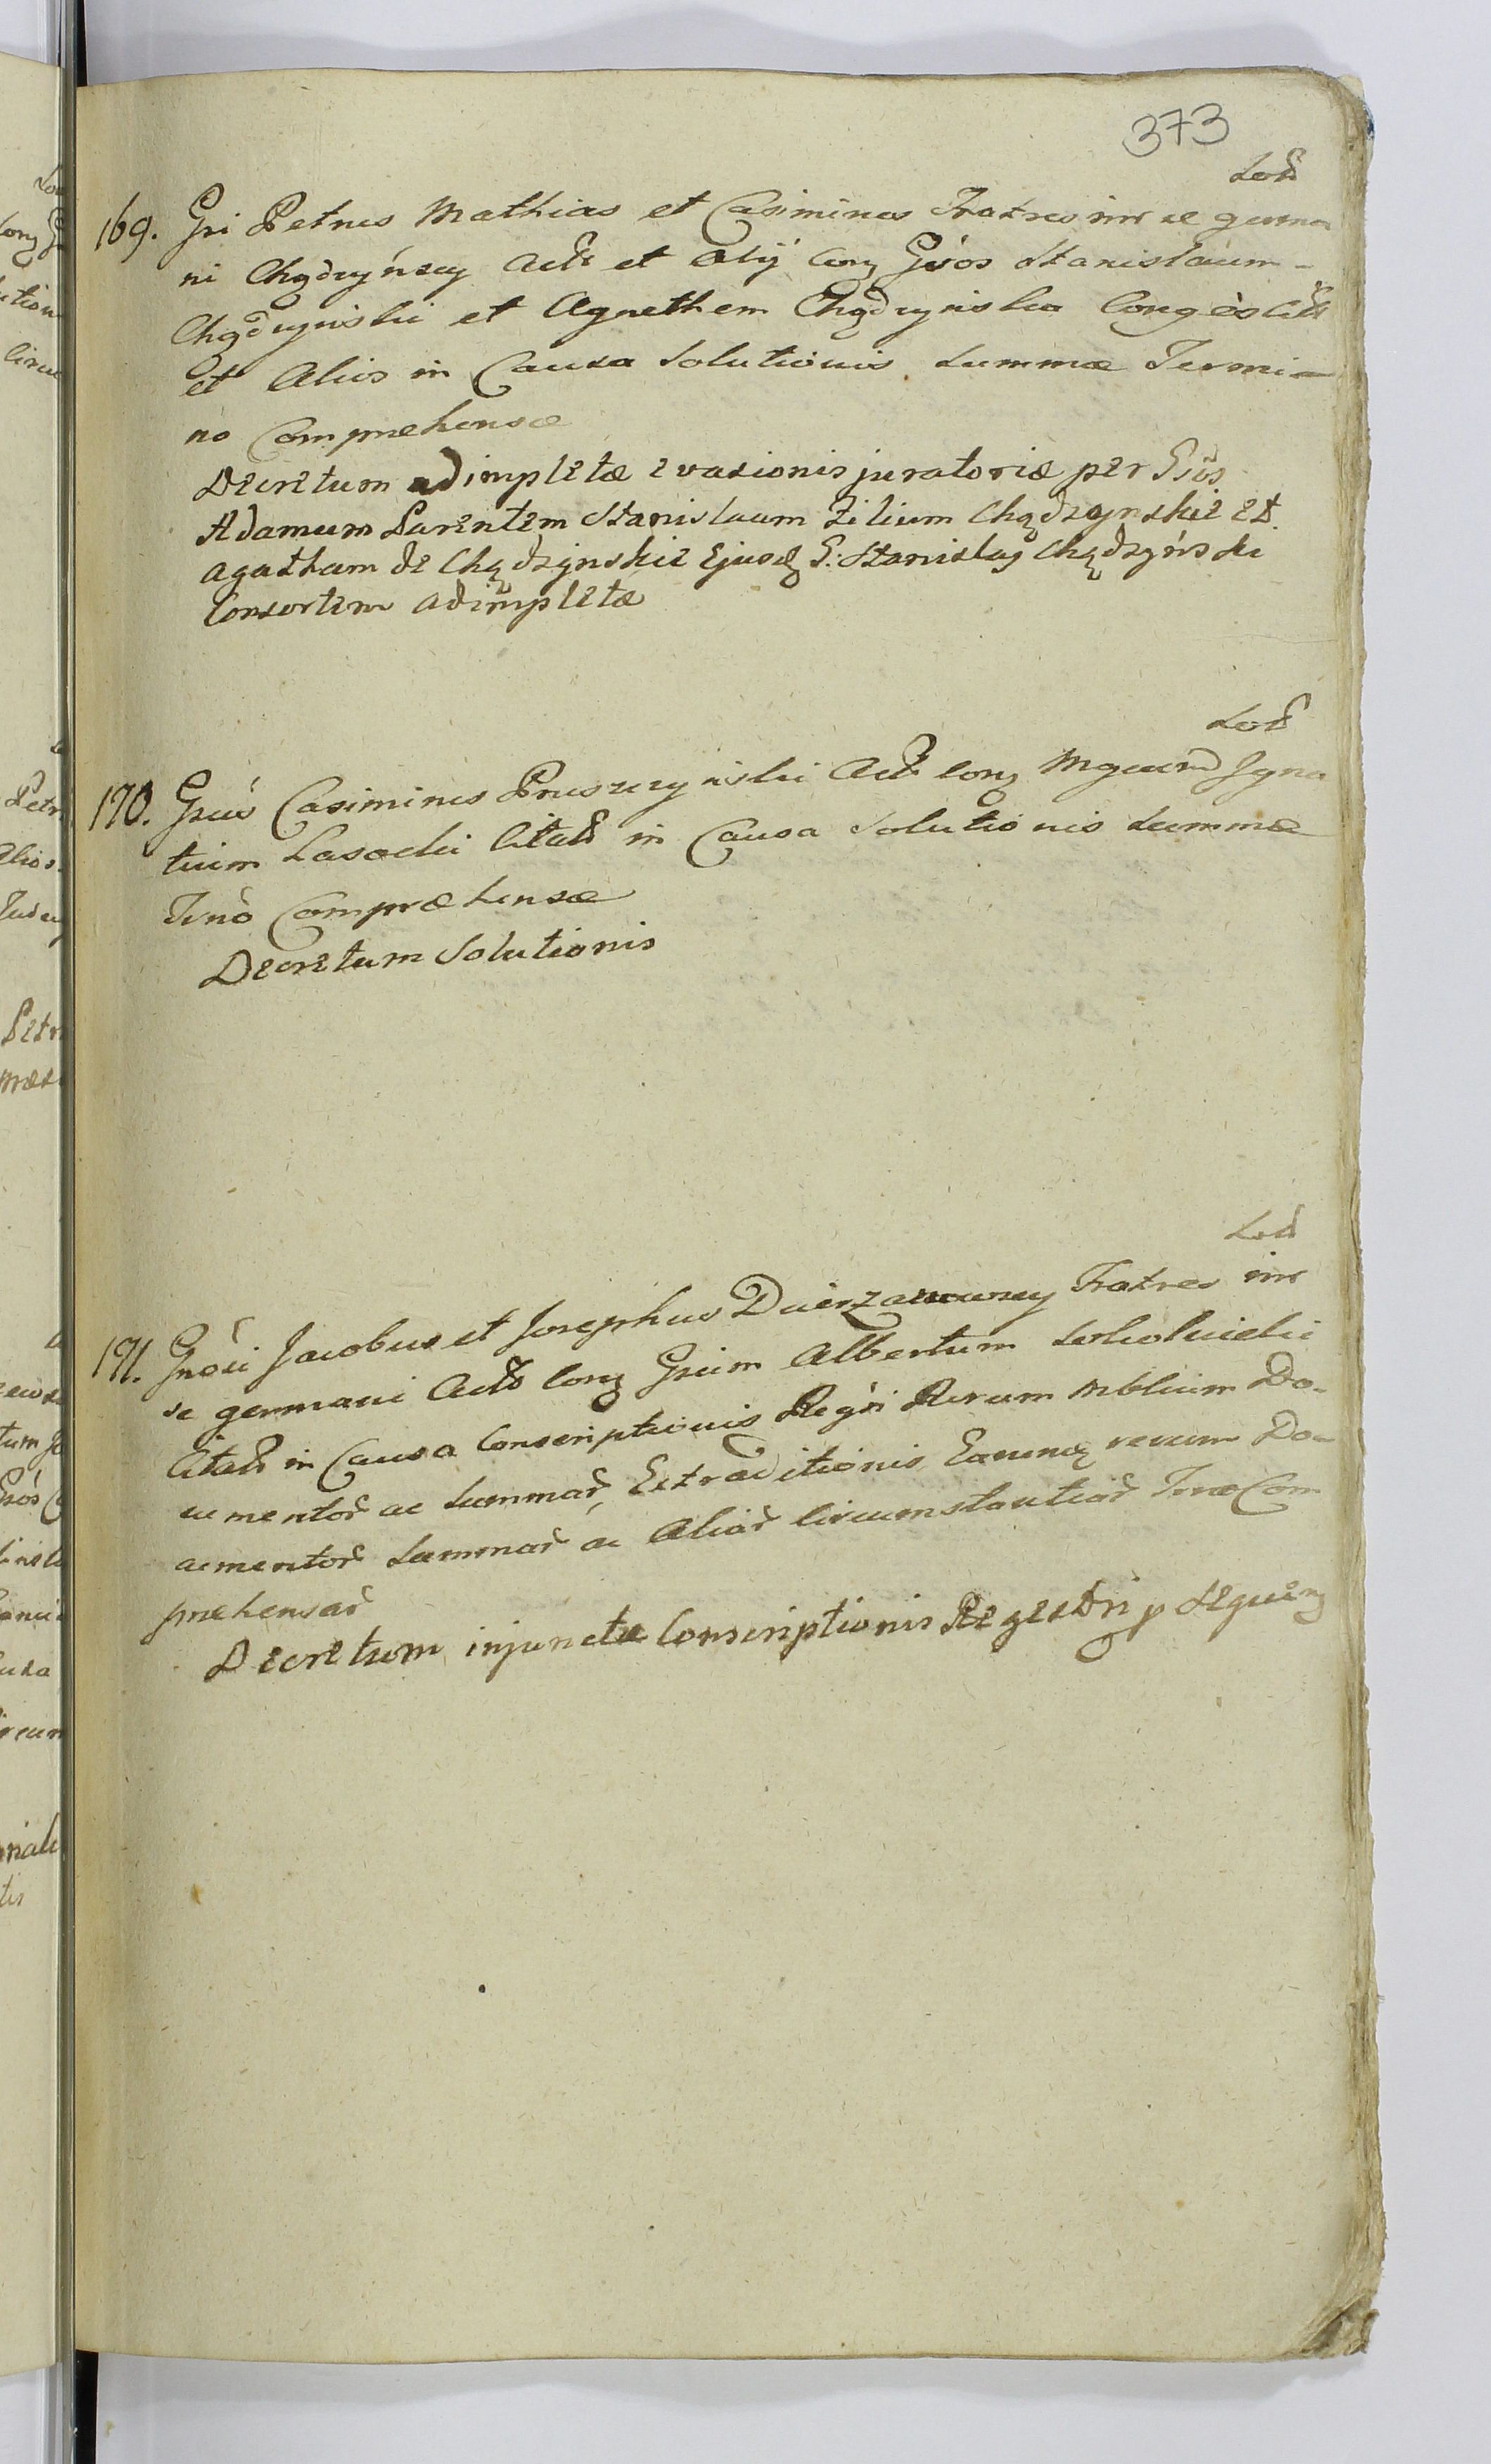 373
169. Gsi Petrus Mathias et Casimirus Fratres inr se germa
ni Chądzyńscy Actr et Alij conz Gsos Stanislaum
Chądzyński et Agnethem Chądzyńska Congēs Citt
et Alios in Causa Solutionis Summæ Termi-
no Comprehensæ
Decretum adimpletæ evasionis juratoriæ per Gsos
Adamum Parentem Stanislaum Filium Chądzynskie et
Agatham de Chądzynskie Ejusd G: Stanislaj Chądzyński
Consortem adimpletæ
170. Gsus Casimirus Pruszczyński Actr conz Mgcum Igna
tium Lasocki Citatt in Causa Solutionis Summæ
Tsno Compræhensæ
Decretum Solutionis
171. Gnosi Jacobus et Josephus Dzierzanowscy Fratres inr
se germani Actt conz Gsum Albertum Sokolnicki
Citatt in Causa Conscriptionis Regri Rerum Mblium Do-
cumentor ac Summar, Extraditionis Earumq rerum Do-
cumentor Summar ac Aliar Circumstantiar Tsno Com
prehensar
Decretum injunctæ Conscriptionis Regestri p